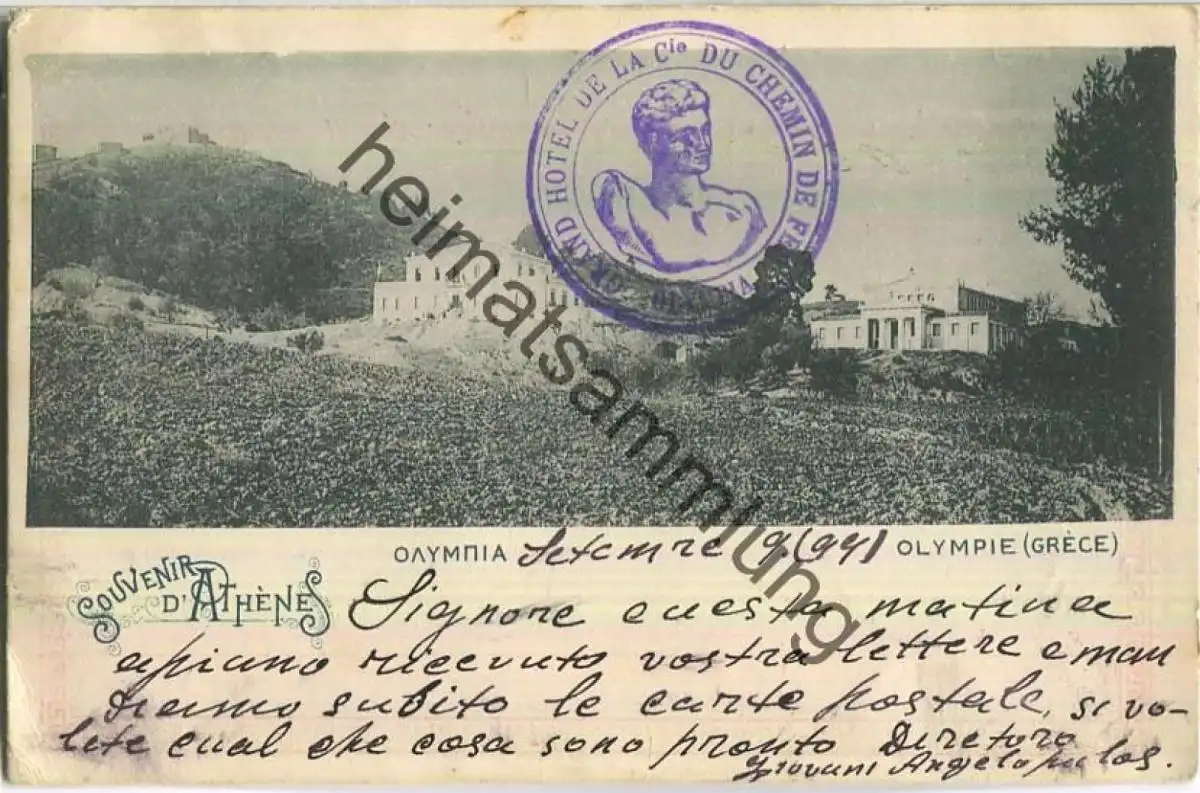 GRAND HOTEL DE LA Cie DU CHEMIN DE FER
heimatsammlung
ΟΛΥΜΠΙΑ Setemre 9 (99) OLYMPIE (GRÈCE)
SOUVENIR D'ATHÈNES
Signore cuesta matina
apiamo ricevuto vostra lettere e man
dramo subito le carte postale, si vo-
lete cual che cosa sono pronto Diretoro
Giovani Angelopulos.